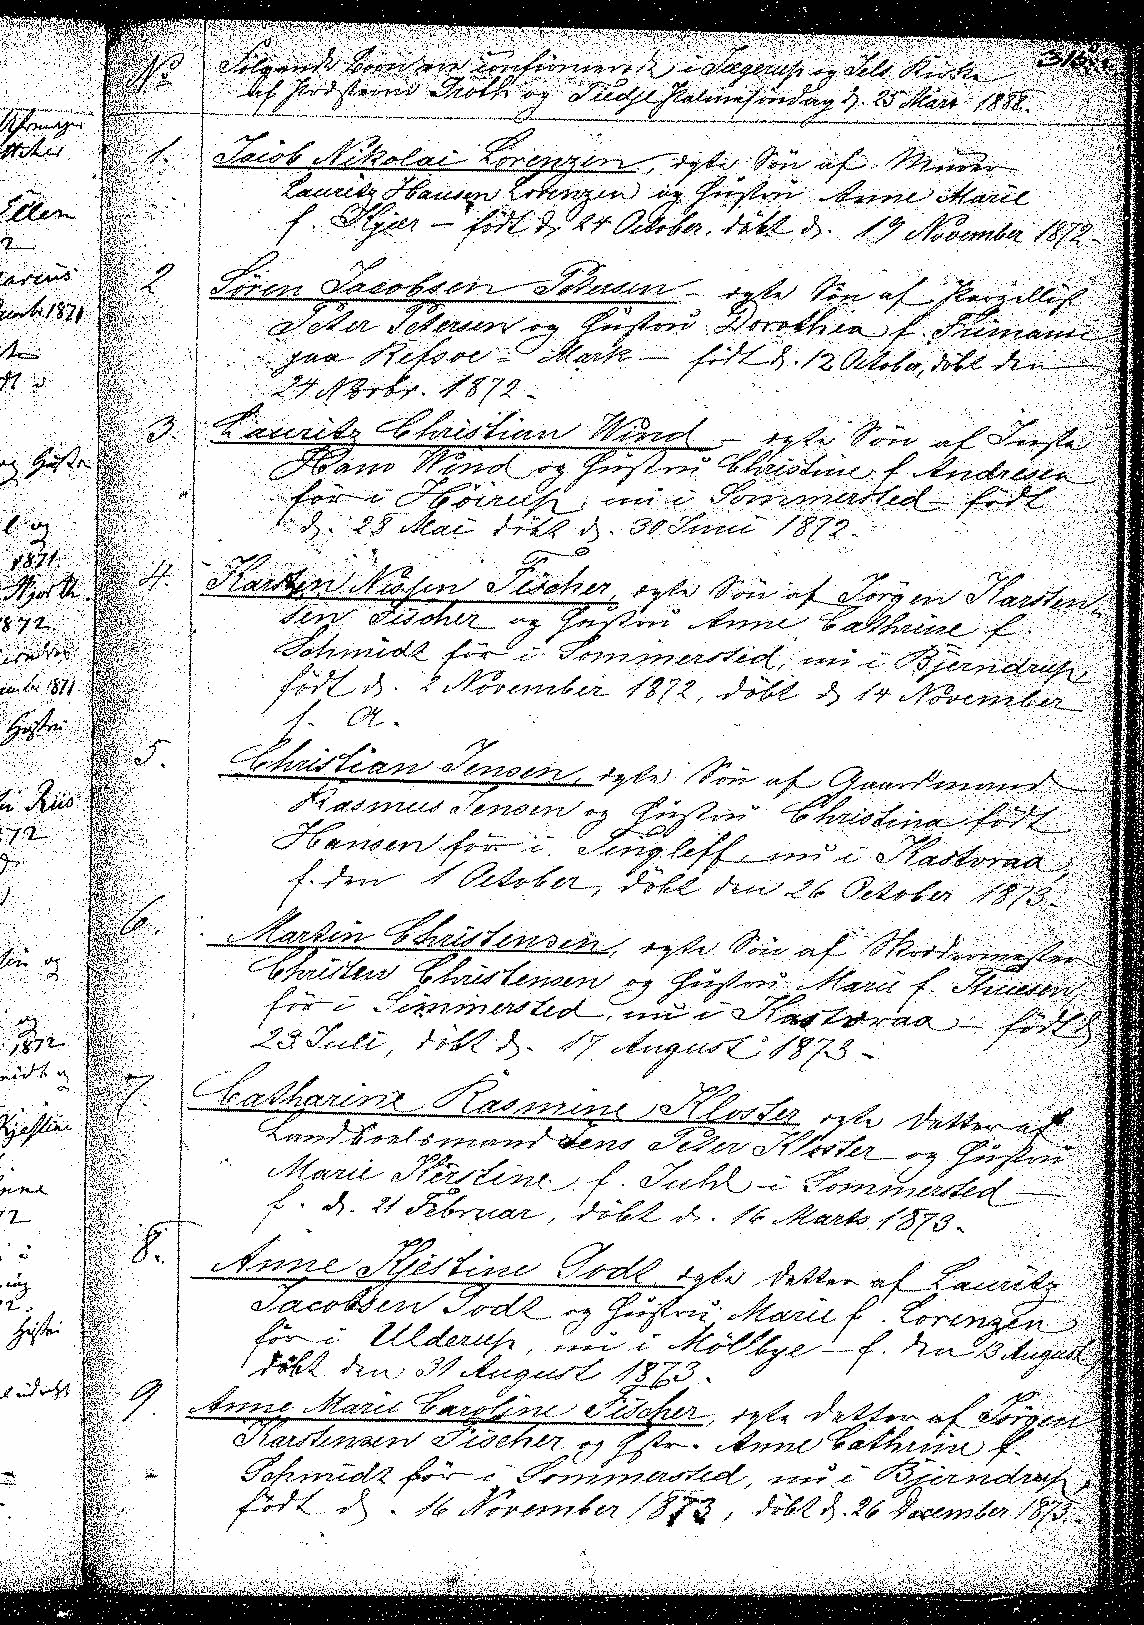 316.
No Følgende Börn ere confirmerede i Jægerup og Jels Kirke
af Præsterne og Palmesöndag d. 25 Mars 1888.
1. Jacob Nikolai Lorenzen, egte Sön af Murer
Lauritz Hansen Lorenzen og Hustru Anne Marie
f. Kjær – födt d. 24 October, döbt d. 19 November 1872.
2 Sören Jacobsen Petersen – egte Sön af Parzellist
Peter Petersen og Hustru Dorothea f.
paa Refsoe-Mark – födt d. 12 October, döbt den
24 Novbr. 1872.
3. Lauritz Christian Wind – egte Sön af Inste
Hans Wind og Hustru Christine f. Andresen
för i Höirup, nu i Sommersted – födt
d. 28 Mai döbt d. 30 Juni 1872.
4. Karsten Nissen Fischer, egte Sön af Jörgen Karsten-
sen Fischer og Hustru Anne Cathrine f.
Schmidt för i Sommersted, nu i Bjerndrup,
födt d. 2 November 1872, döbt d. 14 November
s. A.
5. Christian Jensen, egte Sön af Gaardmand
Rasmus Jensen og Hustru Christina födt
Hansen för i Tingleff nu i Kastvraa,
f. den 1 October, döbt den 26 October 1873.
6. Martin Christensen, egte Sön af Skræddermester
Christen Christensen og Hustru Marie f. Thuesen
för i Simmersted, nu i Kastvraa – födt d.
23 Juli, döbt d. 17 August 1873.
7. Catharine Rasmine Kloster egte Datter af
Landboelsmand Jens Peter Kloster og Hustru
Marie Kerstine f. Juhl i Sommersted –
f. d. 21 Februar, döbt d. 16 Marts 1873.
8. Anne Kjestine Todt egte Datter af Lauritz
Jacobsen Todt og Hustru Marie f. Lorenzen
för i Ulderup, nu i Mölbye – f. den 13 August,
döbt den 31 August 1873.
9. Anne Marie Caroline Fischer, egte Datter af Jörgen
Karstensen Fischer og Hstr. Anne Cathrine f.
Schmidt för i Sommersted, nu i Bjerndrup,
födt d. 16 November 1873, döbt d. 26 December 1873.